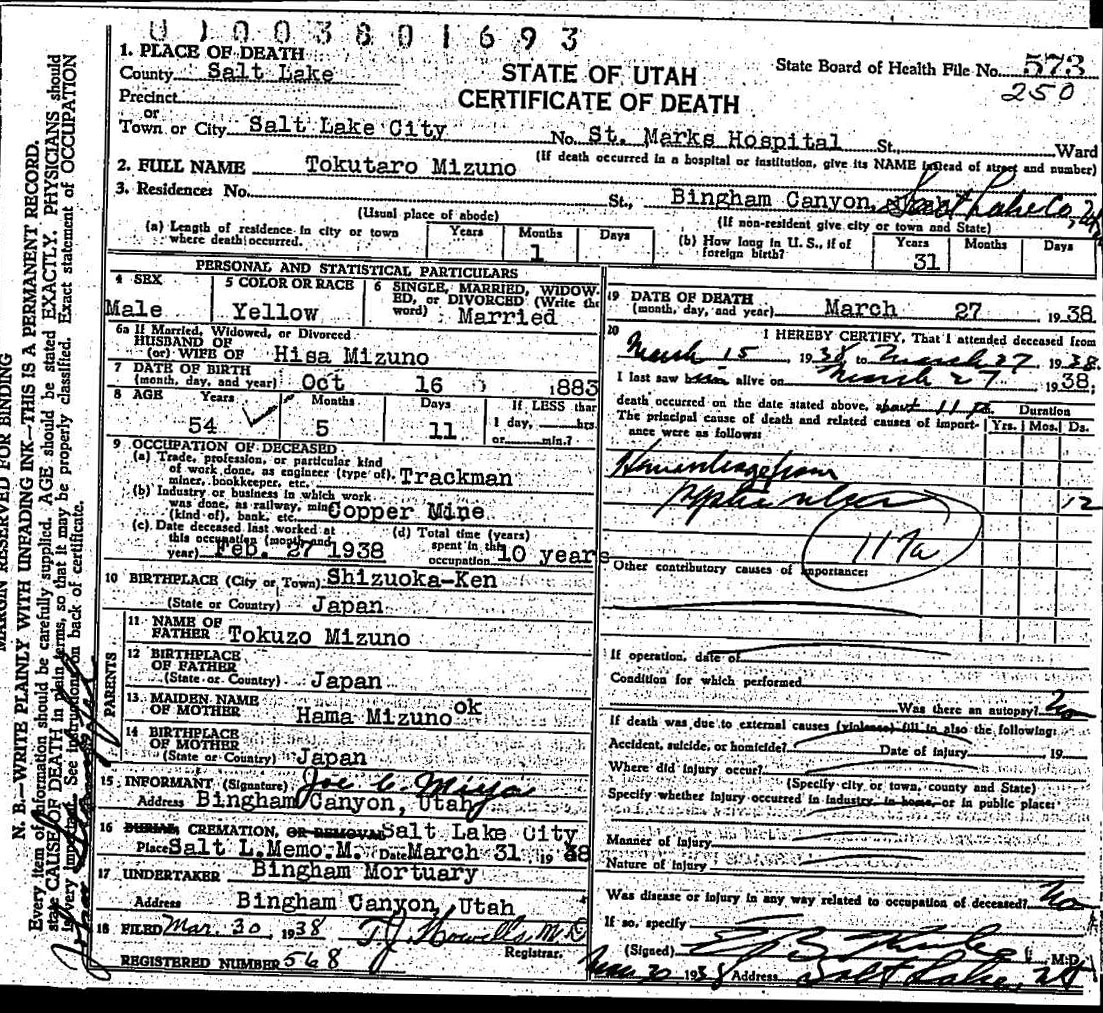 U1003801693
1. PLACE OF DEATH
County Salt Lake
STATE OF UTAH
CERTIFICATE OF DEATH
State Board of Health File No. 573
250
Precinct
or
Town or City Salt Lake City No. St. Marks Hospital St., Ward
(If death occurred in a hospital or institution, give its NAME instead of street and number)
2. FULL NAME Tokutaro Mizuno
3. Residence: No. St., Bingham Canyon, Salt Lake Co,
(Usual place of abode) (If non-resident give city or town and State)
(a) Length of residence in city or town where death occurred. Years Months 1 Days
(b) How long in U. S., if of foreign birth? Years 31 Months Days
PERSONAL AND STATISTICAL PARTICULARS
4 SEX Male
5 COLOR OR RACE Yellow
6 SINGLE, MARRIED, WIDOWED, or DIVORCED (Write the word) Married
6a If Married, Widowed, or Divorced
HUSBAND OF
(or) WIFE OF Hisa Mizuno
7 DATE OF BIRTH
(month, day, and year) Oct 16 1883
8 AGE Years 54 Months 5 Days 11 If LESS than 1 day, hrs. or min.?
9 OCCUPATION OF DECEASED
(a) Trade, profession, or particular kind of work done, as engineer (type of), miner, bookkeeper, etc. Trackman
(b) Industry or business in which work was done, as railway, mine (kind of), bank, etc. Copper Mine
(c) Date deceased last worked at this occupation (month and year) Feb. 27 1938
(d) Total time (years) spent in this occupation 10 years
10 BIRTHPLACE (City or Town) Shizuoka-Ken
(State or Country) Japan
PARENTS
11 NAME OF FATHER Tokuzo Mizuno
12 BIRTHPLACE OF FATHER
(State or Country) Japan
13 MAIDEN NAME OF MOTHER Hama Mizuno ok
14 BIRTHPLACE OF MOTHER
(State or Country) Japan
15 INFORMANT (Signature) Joe C. Miya
Address Bingham Canyon, Utah
16 BURIAL, CREMATION, OR REMOVAL Salt Lake City
Place Salt L. Memo. M. Date March 31 1938
17 UNDERTAKER Bingham Mortuary
Address Bingham Canyon, Utah
18 FILED Mar. 30 1938 T.J. Howells M.D.
Registrar.
REGISTERED NUMBER 568
19 DATE OF DEATH
(month, day, and year) March 27 1938
20 I HEREBY CERTIFY, That I attended deceased from
March 15, 1938, to March 27 1938.
I last saw him alive on March 27 1938;
death occurred on the date stated above, about 11 P.
The principal cause of death and related causes of importance were as follows:
Duration
Yrs. Mos. Ds.
Hemorrhage from
peptic ulcer 12
117a
Other contributory causes of importance:
If operation, date of
Condition for which performed
Was there an autopsy? No
If death was due to external causes (violence) fill in also the following:
Accident, suicide, or homicide? Date of injury 19
Where did injury occur?
(Specify city or town, county and State)
Specify whether injury occurred in industry, in home, or in public place:
Manner of Injury
Nature of Injury
Was disease or injury in any way related to occupation of deceased? No
If so, specify
(Signed) M.D.
1938 Address Salt Lake, Ut
MARGIN RESERVED FOR BINDING
N. B.—WRITE PLAINLY WITH UNFADING INK—THIS IS A PERMANENT RECORD.
Every item of information should be carefully supplied. AGE should be stated EXACTLY. PHYSICIANS should
state CAUSE OF DEATH in plain terms, so that it may be properly classified. Exact statement of OCCUPATION
is very important. See instructions on back of certificate.